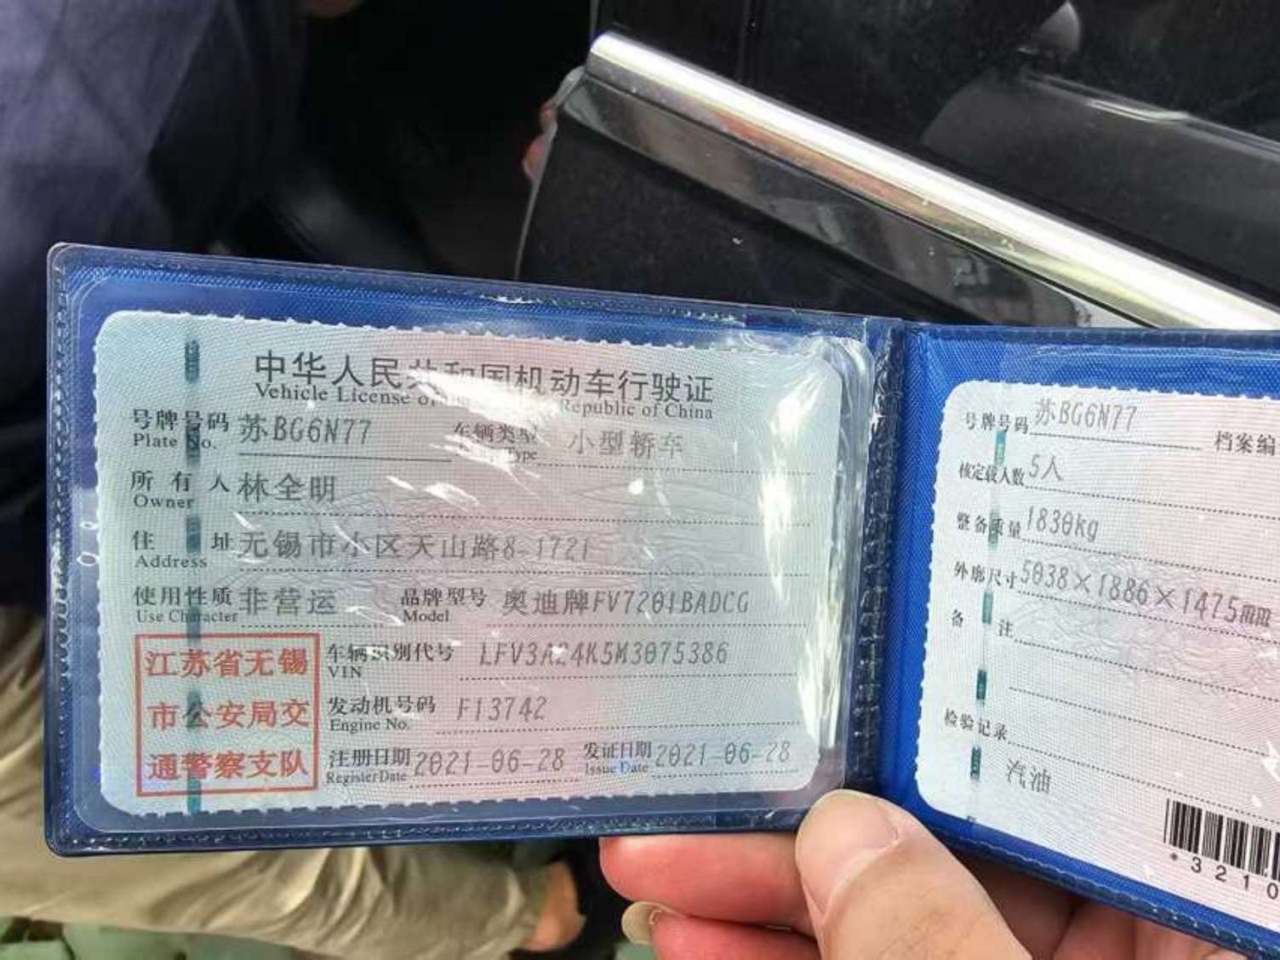 中华人民共和国机动车行驶证
Vehicle License of Republic of China
号牌号码 苏BG6N77 车辆类型 小型轿车
Plate No. Type
所有人 林全明
Owner
住址 无锡市小区天山路8-1721
Address
使用性质 非营运 品牌型号 奥迪牌FV7201BADCG
Use Character Model
江苏省无锡
市公安局交
通警察支队
车辆识别代号 LFV3A24K5M3075386
VIN
发动机号码 F13742
Engine No.
注册日期 2021-06-28 发证日期 2021-06-28
Register Date Issue Date
号牌号码 苏BG6N77 档案编
核定载人数 5人
整备质量 1830kg
外廓尺寸 5038×1886×1475
备注
检验记录
汽油
*3210